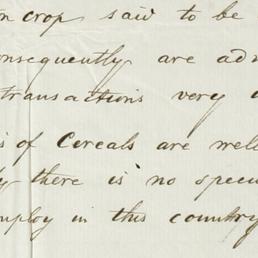 crop said to be
consequently are
transactions very
of Cereals are
there is no
employ in this country